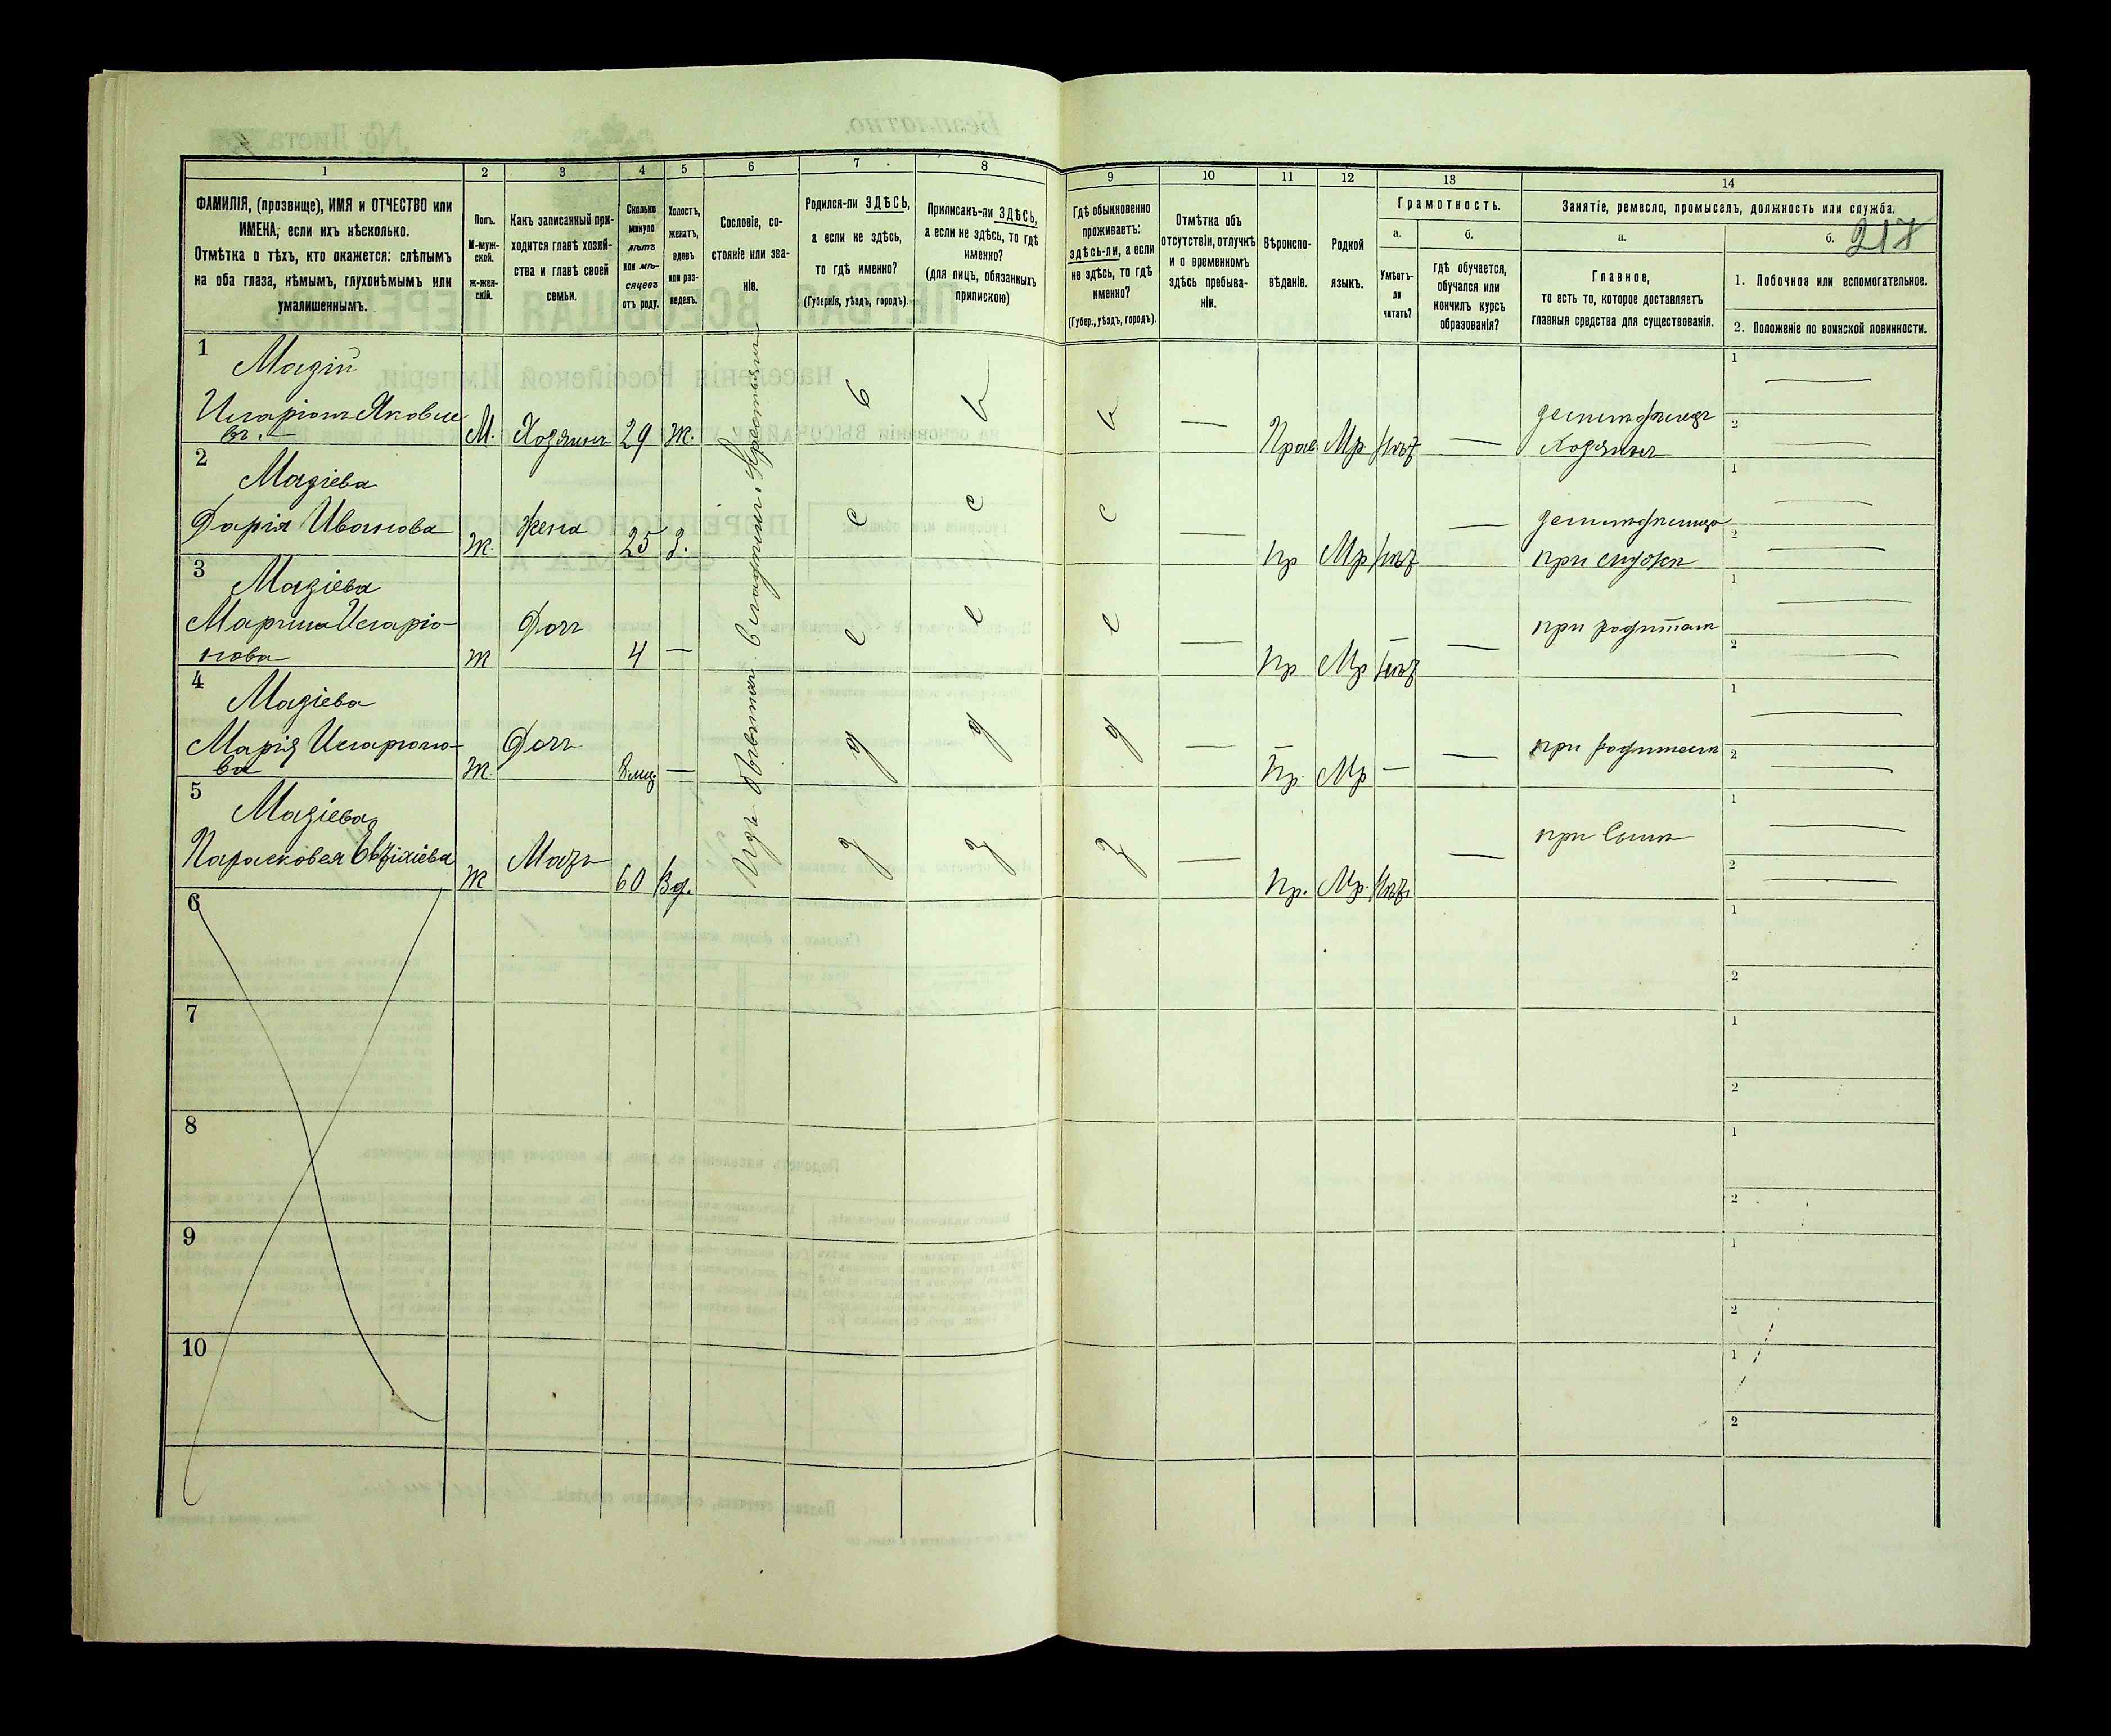 1 2 3 4 5 6 7 8 9 10 11 12 13 14
ФАМИЛІЯ, (прозвище), ИМЯ и ОТЧЕСТВО или
ИМЕНА, если ихъ нѣсколько.
Отмѣтка о тѣхъ, кто окажется: слѣпымъ
на оба глаза, нѣмымъ, глухонѣмымъ или
умалишеннымъ.
Полъ.
М-муж-
ской.
ж-жен-
скій.
Какъ записанный при-
ходится главѣ хозяй-
ства и главѣ своей
семьи.
Сколько
минуло
лѣтъ
или мѣ-
сяцевъ
отъ роду.
Холостъ,
женатъ,
вдовъ
или раз-
веденъ.
Сословіе, со-
стояніе или зва-
ніе.
Родился-ли ЗДѢСЬ,
а если не здѣсь,
то гдѣ именно?
(Губернія, уѣздъ, городъ).
Приписанъ-ли ЗДѢСЬ,
а если не здѣсь, то гдѣ
именно?
(для лицъ, обязанныхъ
припискою)
Гдѣ обыкновенно
проживаетъ:
здѣсь-ли, а если
не здѣсь, то гдѣ
именно?
(Губер., уѣздъ, городъ).
Отмѣтка объ
отсутствіи, отлучкѣ
и о временномъ
здѣсь пребыва-
ніи.
Вѣроиспо-
вѣданіе.
Родной
языкъ.
Грамотность.
а.
Умѣетъ-
ли
читать?
б.
гдѣ обучается,
обучался или
кончилъ курсъ
образованія?
Занятіе, ремесло, промыселъ, должность или служба.
а.
Главное,
то есть то, которое доставляетъ
главныя средства для существованія.
б.
217
1. Побочное или вспомогательное.
2. Положеніе по воинской повинности.
1
Мазій
Иларіонъ Яковле
въ.
М. Хозяинъ 29 Ж.
Прав. Мр нѣт —
Хозяинъ
1
2
2
Мазіева
Дарія Иванова
Ж. Жена 25 З.
с с с
— Пр Мр нѣт —
1
2
3
Мазіева
Марина Иларіо-
нова
Ж Доч 4 —
— Пр Мр нѣт —
1
2
4
Мазіева
Марія Иларіоно-
ва
Ж. Доч 8 мц —
д д д
— Пр. Мр — —
1
2
5
Мазіева
Ж Мать 60 Вд.
з з з
— Пр. Мр. нѣт. —
при сынѣ
1
2
6
1
2
7
1
2
8
1
2
9
1
2
10
1
2